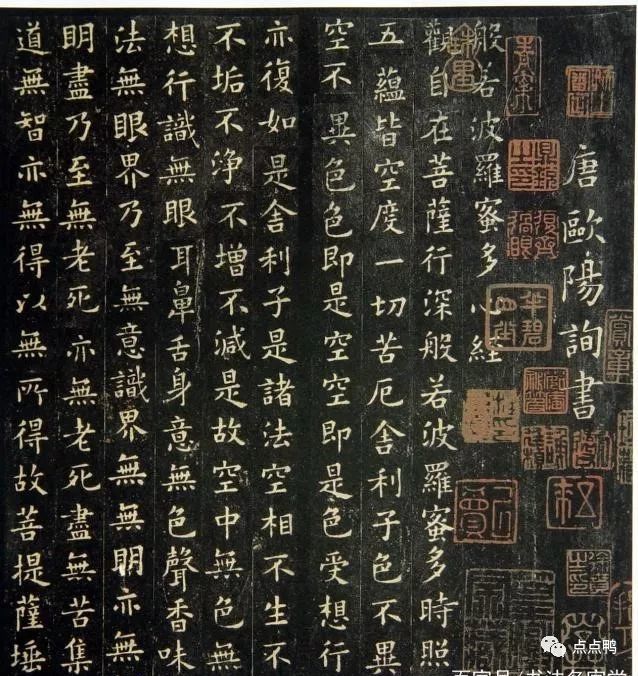 唐歐陽詢書
般若波羅蜜多心經
觀自在菩薩行深般若波羅蜜多時照
五蘊皆空度一切苦厄舍利子色不異
空不異色色即是空空即是色受想行
亦復如是舍利子是諸法空相不生不
不垢不淨不增不減是故空中無色無
想行識無眼耳鼻舌身意無色聲香味
法無眼界乃至無意識界無無明亦無
明盡乃至無老死亦無老死盡無苦集
道無智亦無得以無所得故菩提薩埵
点点鸭